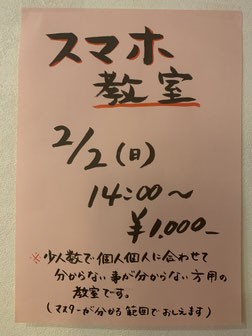 スマホ
教室
2/2(日)
14:00〜
¥1,000-
※少人数で個人個人に合わせて
分からない事が分からない方用の
教室です。
(マスターが分かる範囲でおしえます)